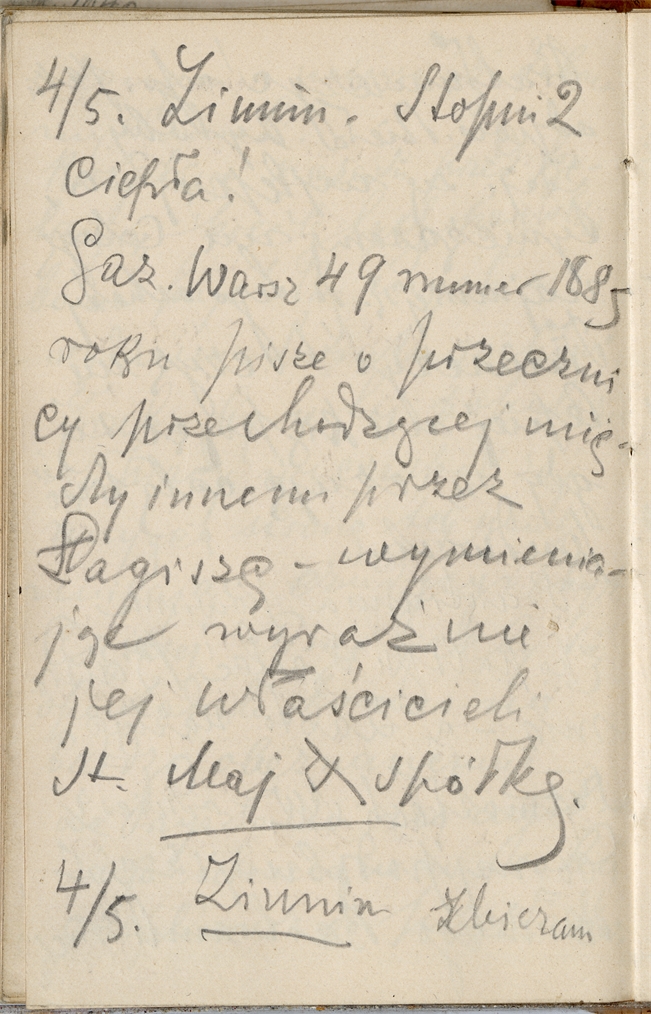 4/5. Zimnin. Stopni 2
ciepła!
Gaz. Warsz 49 numer 1885
roku pisze o przeczni
cy przechodzącej mię-
dzy innemi przez
Łagiszę - wymienia-
jąc wyraźnie
jej właścicieli
St. Maj & spółkę.
4/5. Zimnin Zbieram